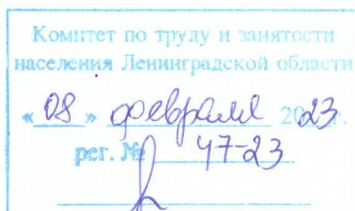 Комитет по труду и занятости
населения Ленинградской области
«08» февраля 2023г.
рег. № 47-23